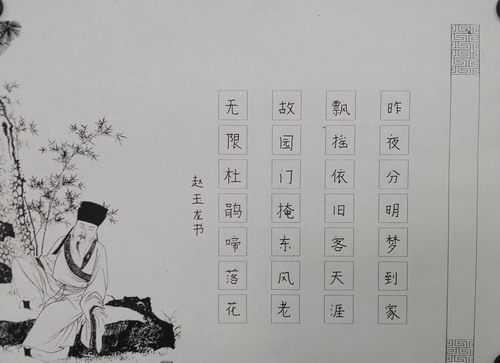 昨夜分明梦到家
飘摇依旧客天涯
故园门掩东风老
无限杜鹃啼落花
赵玉龙书